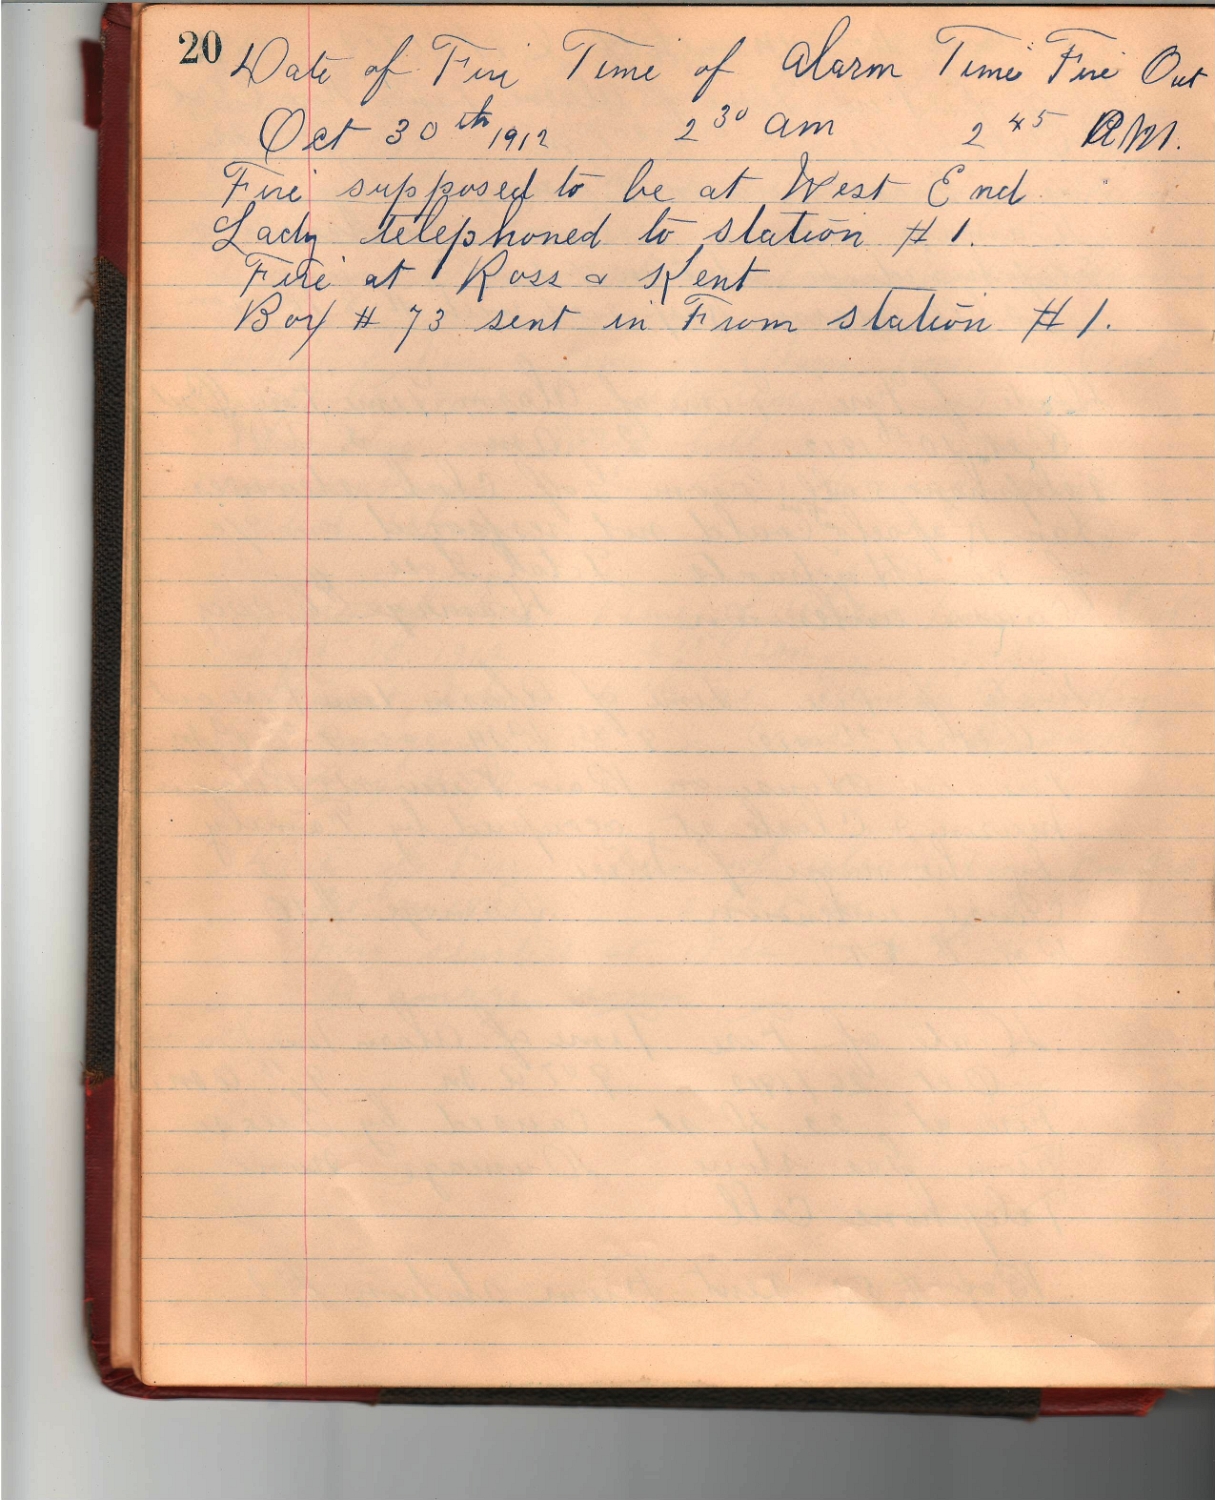 20 Date of Fire Time of Alarm Time Fire Out
Oct 30th 1912 2 30 am 2 45 A.M.
Fire supposed to be at West End
Lady telephoned to station # 1.
Fire at Ross & Kent
Box # 73 sent in From station # 1.